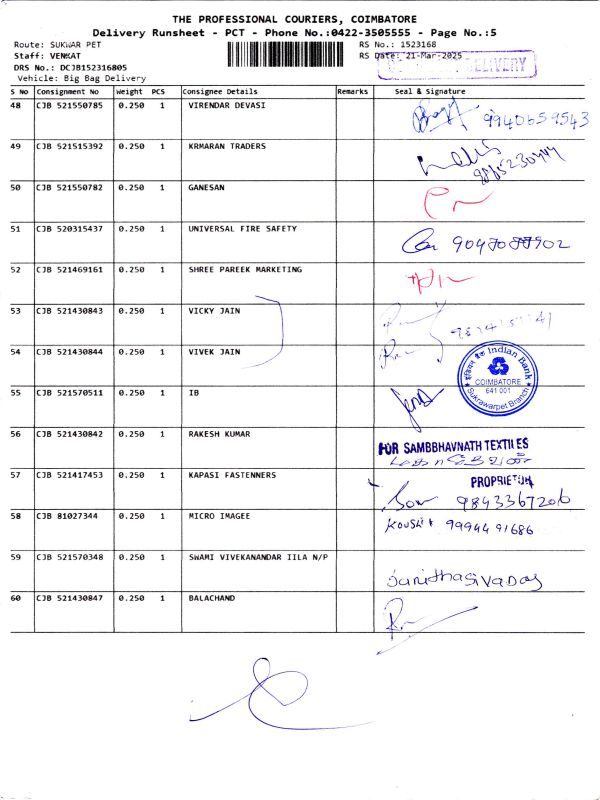 THE PROFESSIONAL COURIERS, COIMBATORE
Delivery Runsheet - PCT - Phone No.:0422-3505555 - Page No.:5
Route: SUKWAR PET RS No.: 1523168
Staff: VENKAT RS Date: 21-Mar-2025
DRS No.: DCJB152316805 DELIVERY
Vehicle: Big Bag Delivery
S No Consignment No Weight PCS Consignee Details Remarks Seal & Signature
48 CJB 521550785 0.250 1 VIRENDAR DEVASI 9940659543
49 CJB 521515392 0.250 1 KRMARAN TRADERS
50 CJB 521550782 0.250 1 GANESAN
51 CJB 520315437 0.250 1 UNIVERSAL FIRE SAFETY
52 CJB 521469161 0.250 1 SHREE PAREEK MARKETING
53 CJB 521430843 0.250 1 VICKY JAIN
54 CJB 521430844 0.250 1 VIVEK JAIN
इंडियन बैंक Indian Bank
COIMBATORE
641 001
Sukrawarpet Branch
55 CJB 521570511 0.250 1 IB
56 CJB 521430842 0.250 1 RAKESH KUMAR
FOR SAMBBHAVNATH TEXTILES
57 CJB 521417453 0.250 1 KAPASI FASTENNERS PROPRIETOR
9843367206
58 CJB 81027344 0.250 1 MICRO IMAGEE 9994491686
59 CJB 521570348 0.250 1 SWAMI VIVEKANANDAR IILA N/P
60 CJB 521430847 0.250 1 BALACHAND